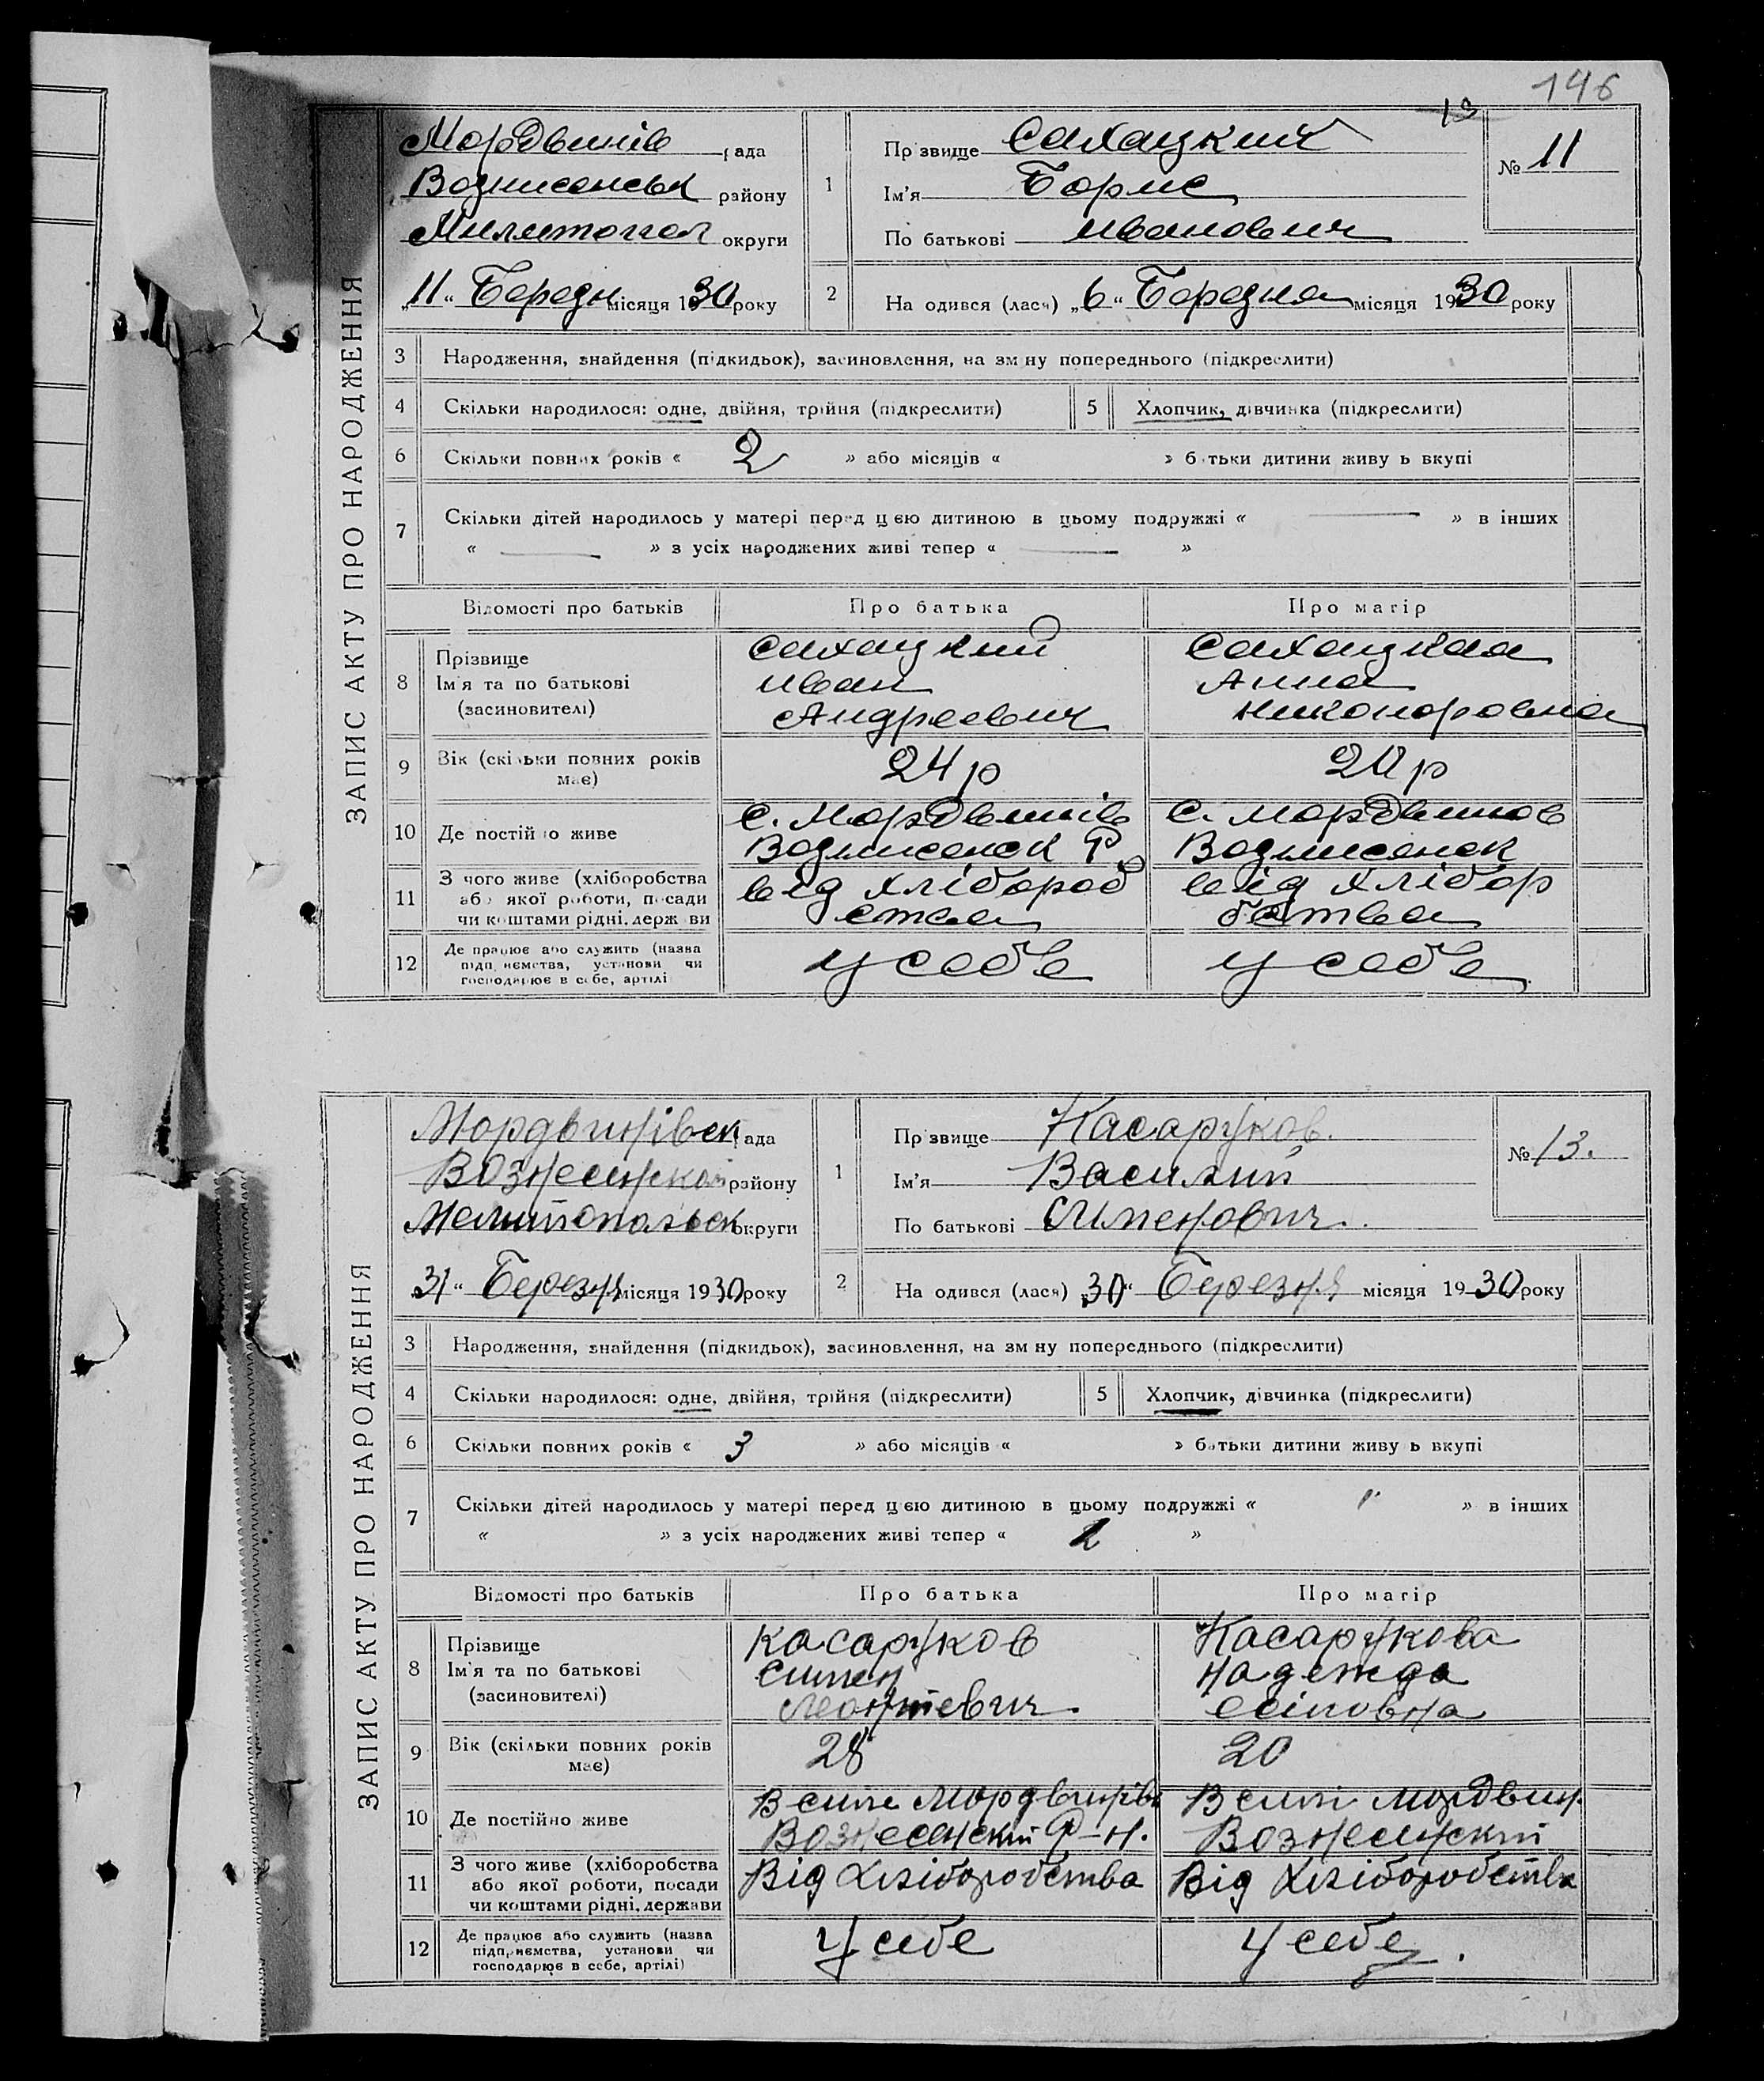 146
13
ЗАПИС АКТУ ПРО НАРОДЖЕННЯ
Мордвинів рада
Вознисенськ району
Милитопол округи
„11“ Березн місяця 1930 року
1
Прізвище Сахацкий
Ім'я Борис
По батькові Иванович
№ 11
2
На одився (лася) „6“ Березна місяця 1930 року
3 Народження, знайдення (підкидьок), засиновлення, на зм ну попереднього (підкреслити)
4 Скільки народилося: одне, двійня, трійня (підкреслити) 5 Хлопчик, дівчинка (підкреслити)
6 Скільки повних років « 2 » або місяців « » батьки дитини живу ь вкупі
7 Скільки дітей народилось у матері перед цією дитиною в цьому подружжі « — » в інших
« — » з усіх народжених живі тепер « — »
Відомості про батьків Про батька Про матір
8 Прізвище Сахацкий Сахацкаа
Ім'я та по батькові Иван Анна
(засиновителі) Андреевич Никоноровна
9 Вік (скільки повних років 24 р 20 р
має)
10 Де постійно живе С. Мордвинів С. Мордвинов
Вознисенск Р Вознисенск
11 З чого живе (хліборобства від хлібороб від хлібор
або якої роботи, посади ства бства
чи коштами рідні, держави
12 Де працює або служить (назва у себе у себе
підприємства, установи чи
господарює в себе, артілі
ЗАПИС АКТУ ПРО НАРОДЖЕННЯ
Мордвинівск рада
Вознесенской району
Мелитопольск округи
31“ Березня місяця 1930 року
1
Прізвище Касаруков.
Ім'я Василий
По батькові Сименович.
№ 13.
2
На одився (лася) „30“ Березня місяця 1930 року
3 Народження, знайдення (підкидьок), засиновлення, на зм ну попереднього (підкреслити)
4 Скільки народилося: одне, двійня, трійня (підкреслити) 5 Хлопчик, дівчинка (підкреслити)
6 Скільки повних років « 3 » або місяців « » батьки дитини живу ь вкупі
7 Скільки дітей народилось у матері перед цією дитиною в цьому подружжі « » в інших
« » з усіх народжених живі тепер « »
Відомості про батьків Про батька Про матір
8 Прізвище Касаруков Касарукова
Ім'я та по батькові Симен Надежда
(засиновителі) Леонтевич. Осіповна
9 Вік (скільки повних років 28 20
має)
10 Де постійно живе В силе Мордвинівк В силі Мордвин.
Вознесенский Р-н. Вознесенский
11 З чого живе (хліборобства Від Хліборобства Від Хліборобства
або якої роботи, посади
чи коштами рідні, держави
12 Де працює або служить (назва У себе У себе.
підприємства, установи чи
господарює в себе, артілі)